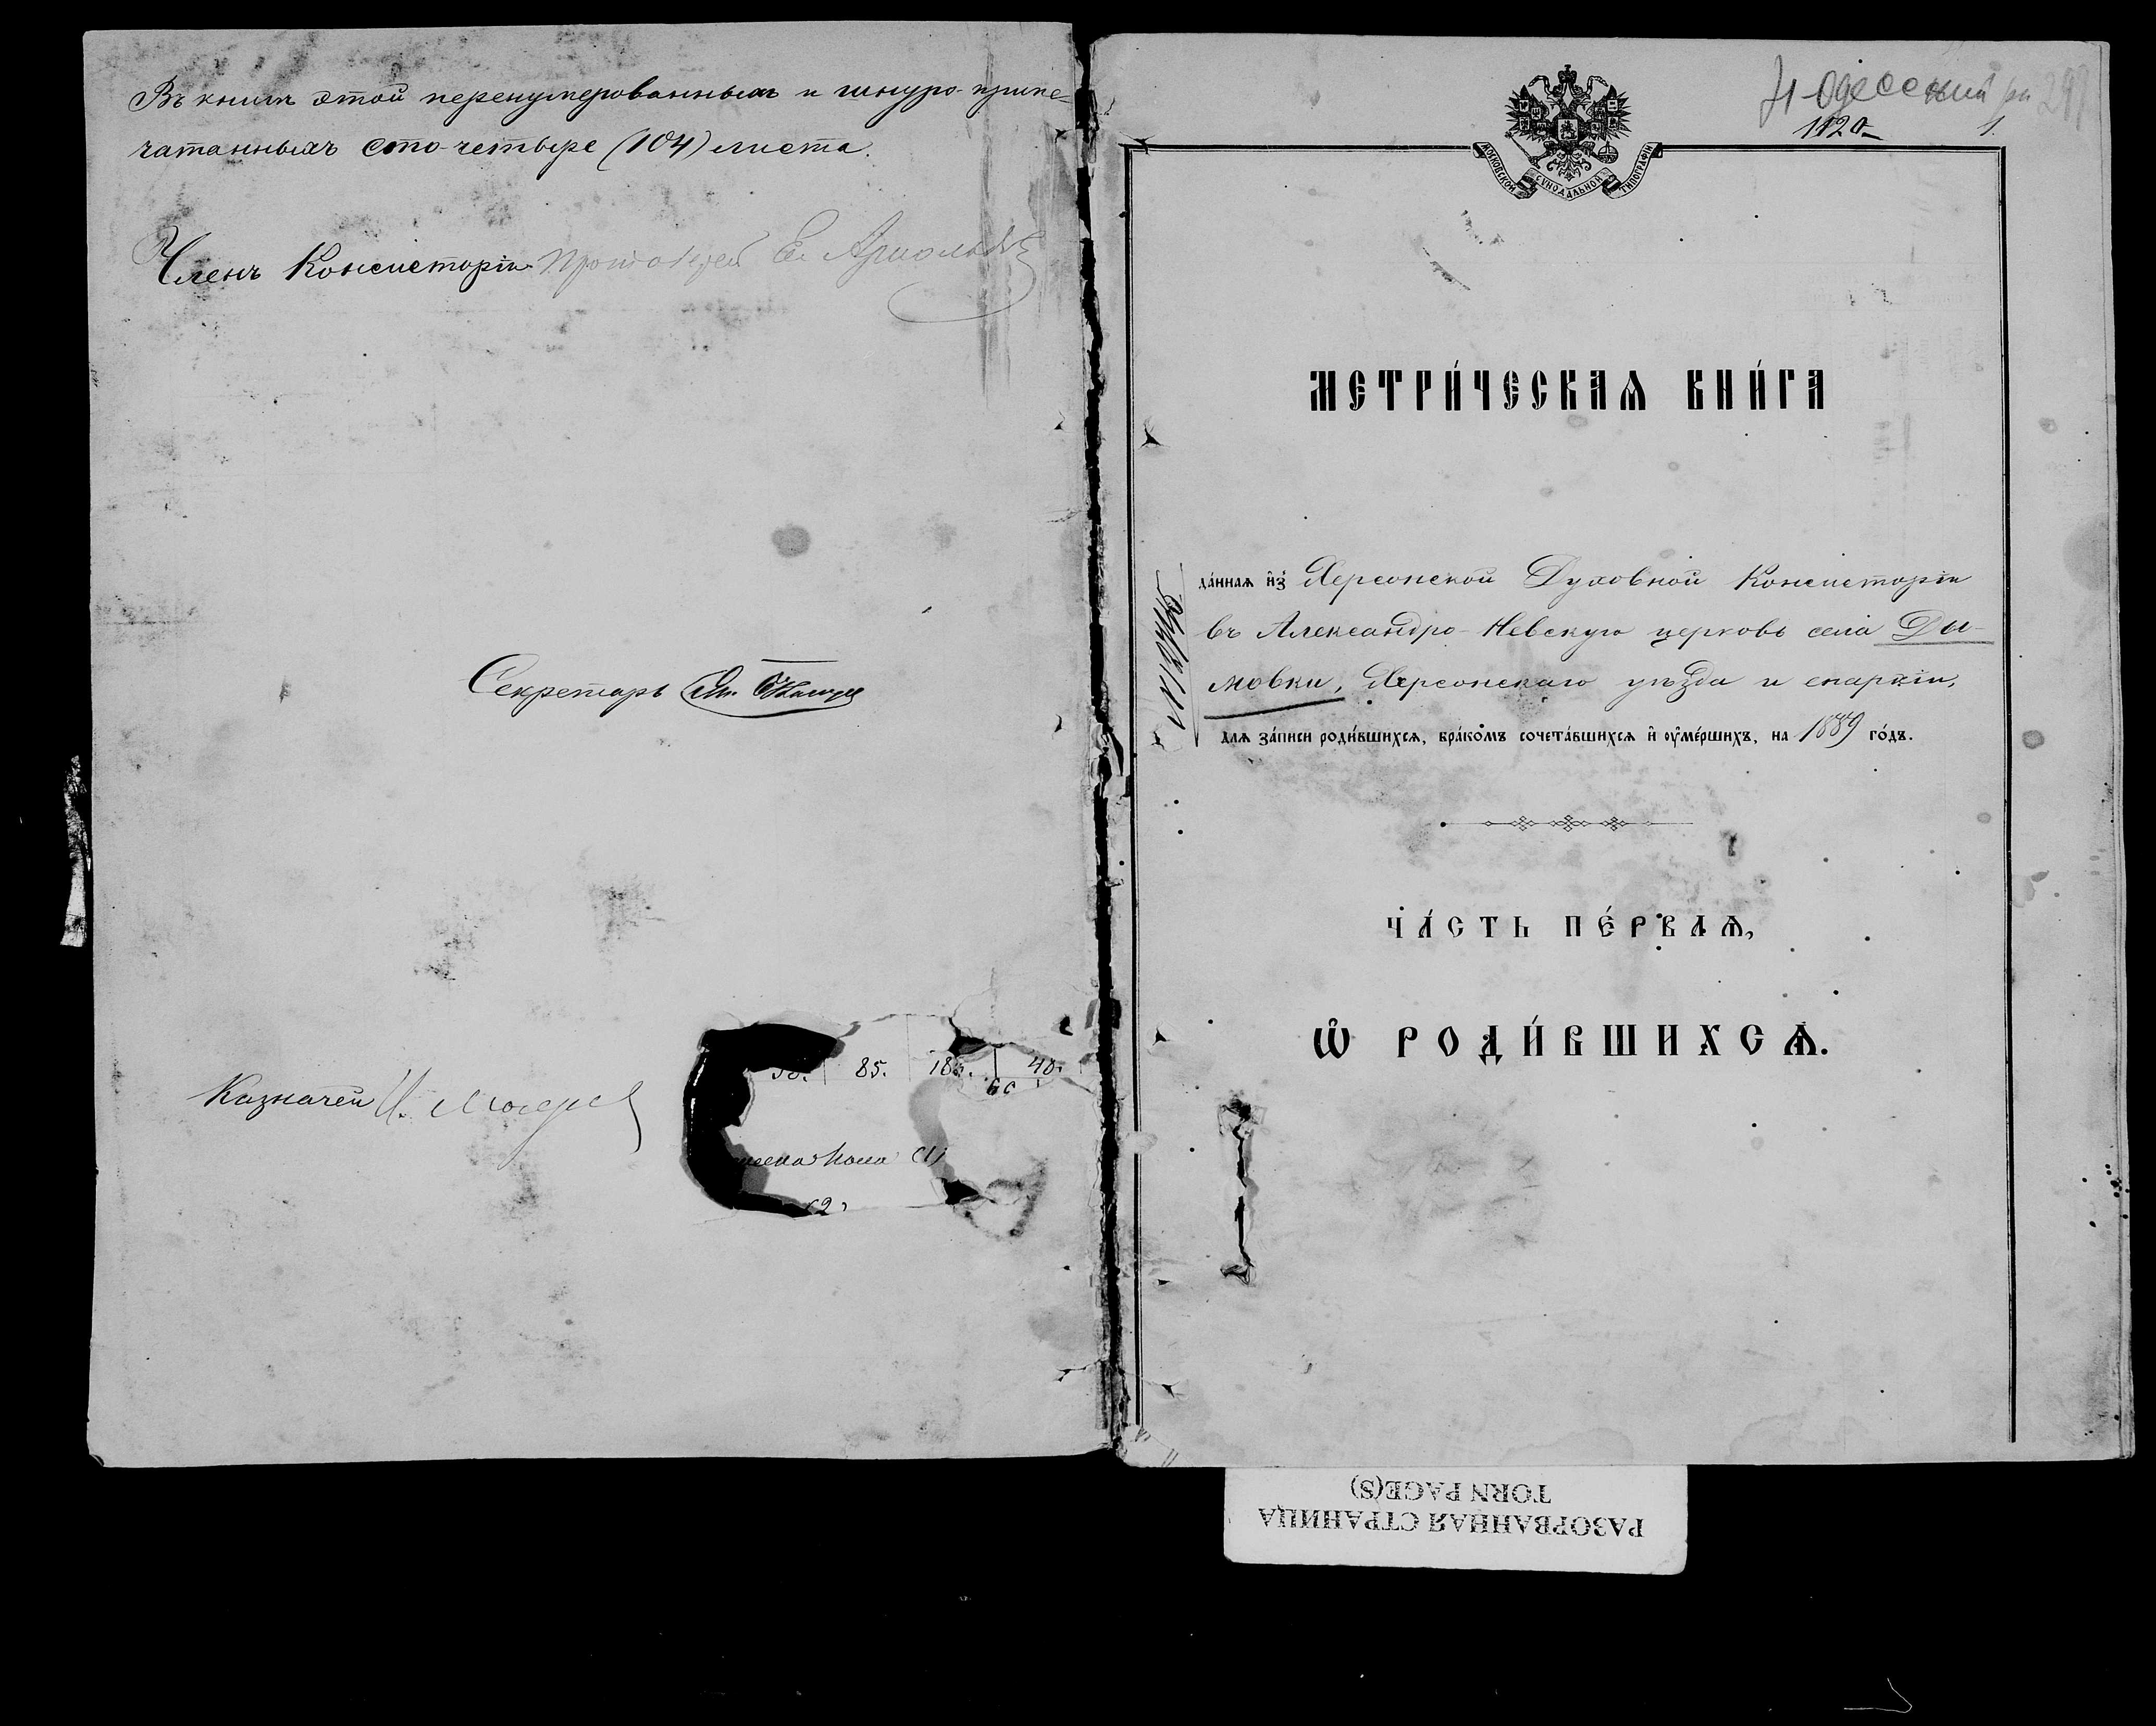 Въ книгѣ этой перенумерованныхъ и шнуро-припе-
чатанныхъ сто-четыре (104) листа.
Членъ Консисторіи Протоіерей
Секретарь
Казначей
85.
40.
(1)
(2)
1.
МОСКОВСКОЙ СѴНОДАЛЬНОЙ ТИПОГРАФІИ
МЕТРИ́ЧЕСКАѦ КНИ́ГА
да́ннаѧ и҆з̾ Херсонской Духовной Консисторіи
въ Александро-Невскую церковь села Ды-
мовки, Херсонскаго уѣзда и епархіи,
длѧ за́писи роди́вшихсѧ, бра́комъ сочета́вшихсѧ и҆ ᲂу҆ме́ршихъ, на 1889 го́дъ.
ЧА́СТЬ ПЕ́РВАѦ,
Ѡ҆ РОДИ́ВШИХСѦ.
РАЗОРВАННАЯ СТРАНИЦА
TORN PAGE(S)